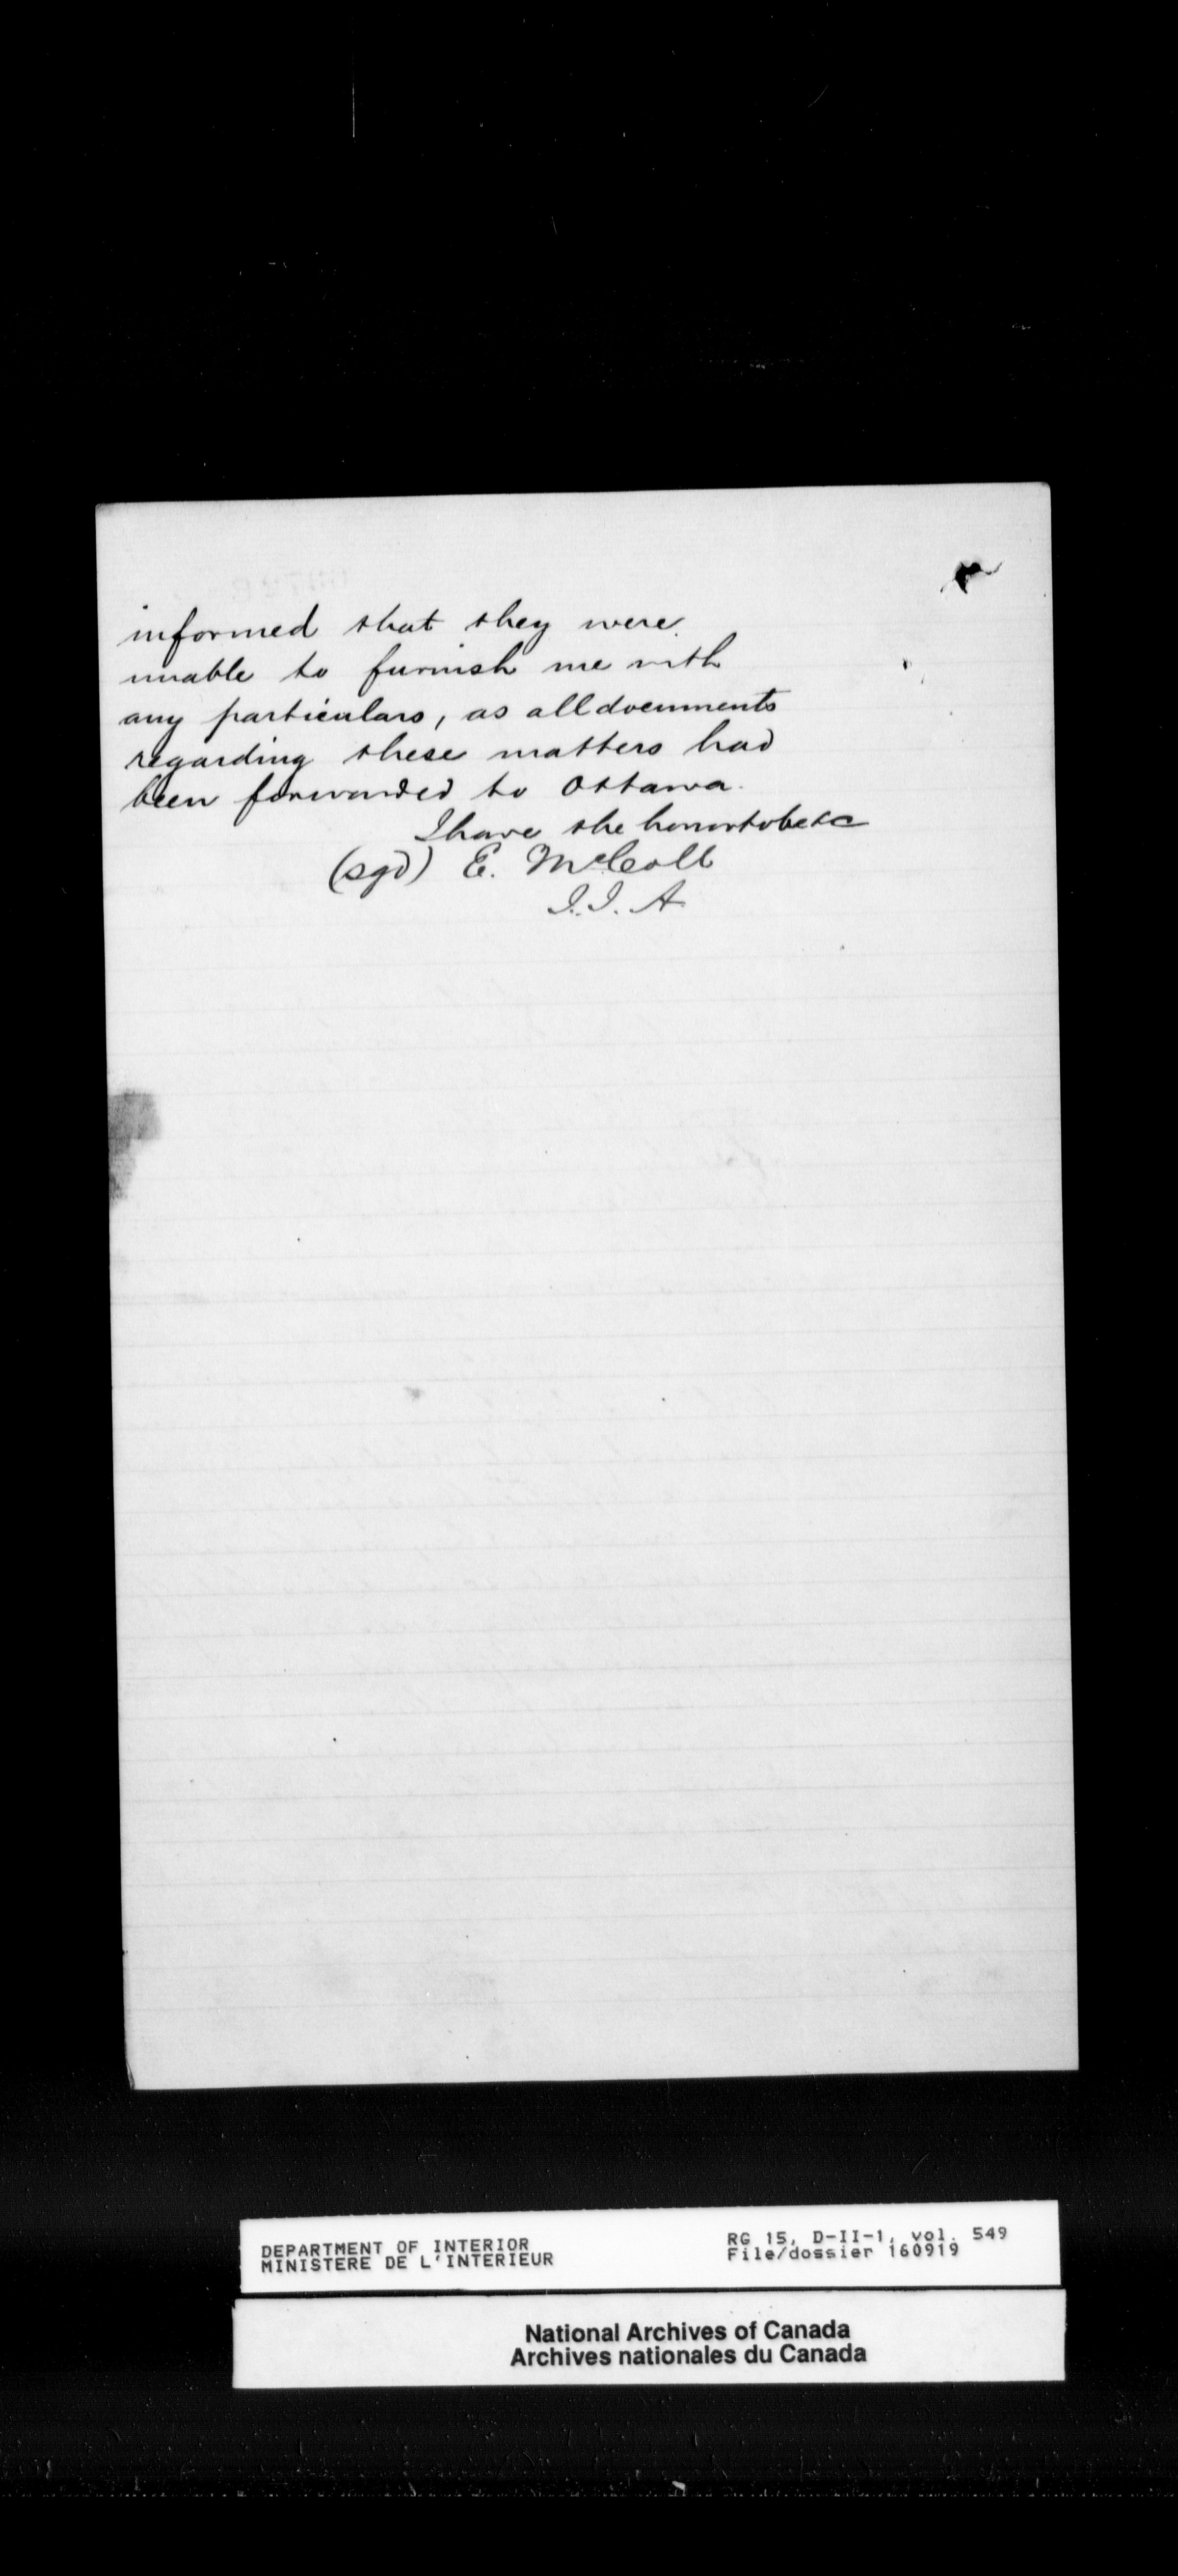 informed that they were
unable to furnish me with
any particulars, as all documents
regarding these matters had
been forwarded to Ottawa.
I have the honor to be &c
(sgd) E. McColl
I. I. A
DEPARTMENT OF INTERIOR
MINISTERE DE L'INTERIEUR
RG 15, D-II-1, vol. 549
File/dossier 160919
National Archives of Canada
Archives nationales du Canada